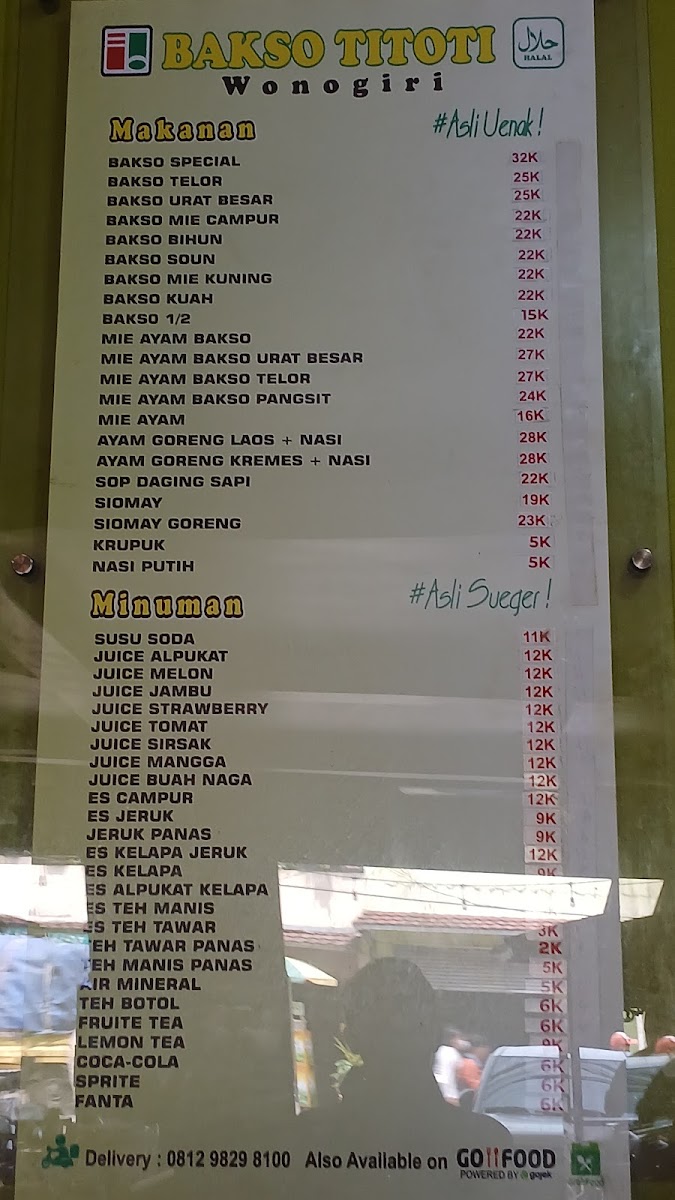 BAKSO TITOTI
Wonogiri
حلال
HALAL
Makanan #Asli Uenak!
BAKSO SPECIAL 32K
BAKSO TELOR 25K
BAKSO URAT BESAR 25K
BAKSO MIE CAMPUR 22K
BAKSO BIHUN 22K
BAKSO SOUN 22K
BAKSO MIE KUNING 22K
BAKSO KUAH 22K
BAKSO 1/2 15K
MIE AYAM BAKSO 22K
MIE AYAM BAKSO URAT BESAR 27K
MIE AYAM BAKSO TELOR 27K
MIE AYAM BAKSO PANGSIT 24K
MIE AYAM 16K
AYAM GORENG LAOS + NASI 28K
AYAM GORENG KREMES + NASI 28K
SOP DAGING SAPI 22K
SIOMAY 19K
SIOMAY GORENG 23K
KRUPUK 5K
NASI PUTIH 5K
Minuman #Asli Sueger!
SUSU SODA 11K
JUICE ALPUKAT 12K
JUICE MELON 12K
JUICE JAMBU 12K
JUICE STRAWBERRY 12K
JUICE TOMAT 12K
JUICE SIRSAK 12K
JUICE MANGGA 12K
JUICE BUAH NAGA 12K
ES CAMPUR 12K
ES JERUK 9K
JERUK PANAS 9K
ES KELAPA JERUK 12K
ES KELAPA 9K
ES ALPUKAT KELAPA
ES TEH MANIS
ES TEH TAWAR 3K
TEH TAWAR PANAS 2K
TEH MANIS PANAS 5K
AIR MINERAL 5K
TEH BOTOL 6K
FRUITE TEA 6K
LEMON TEA 9K
COCA-COLA 6K
SPRITE 6K
FANTA 6K
Delivery : 0812 9829 8100 Also Available on GOFOOD
POWERED BY gojek